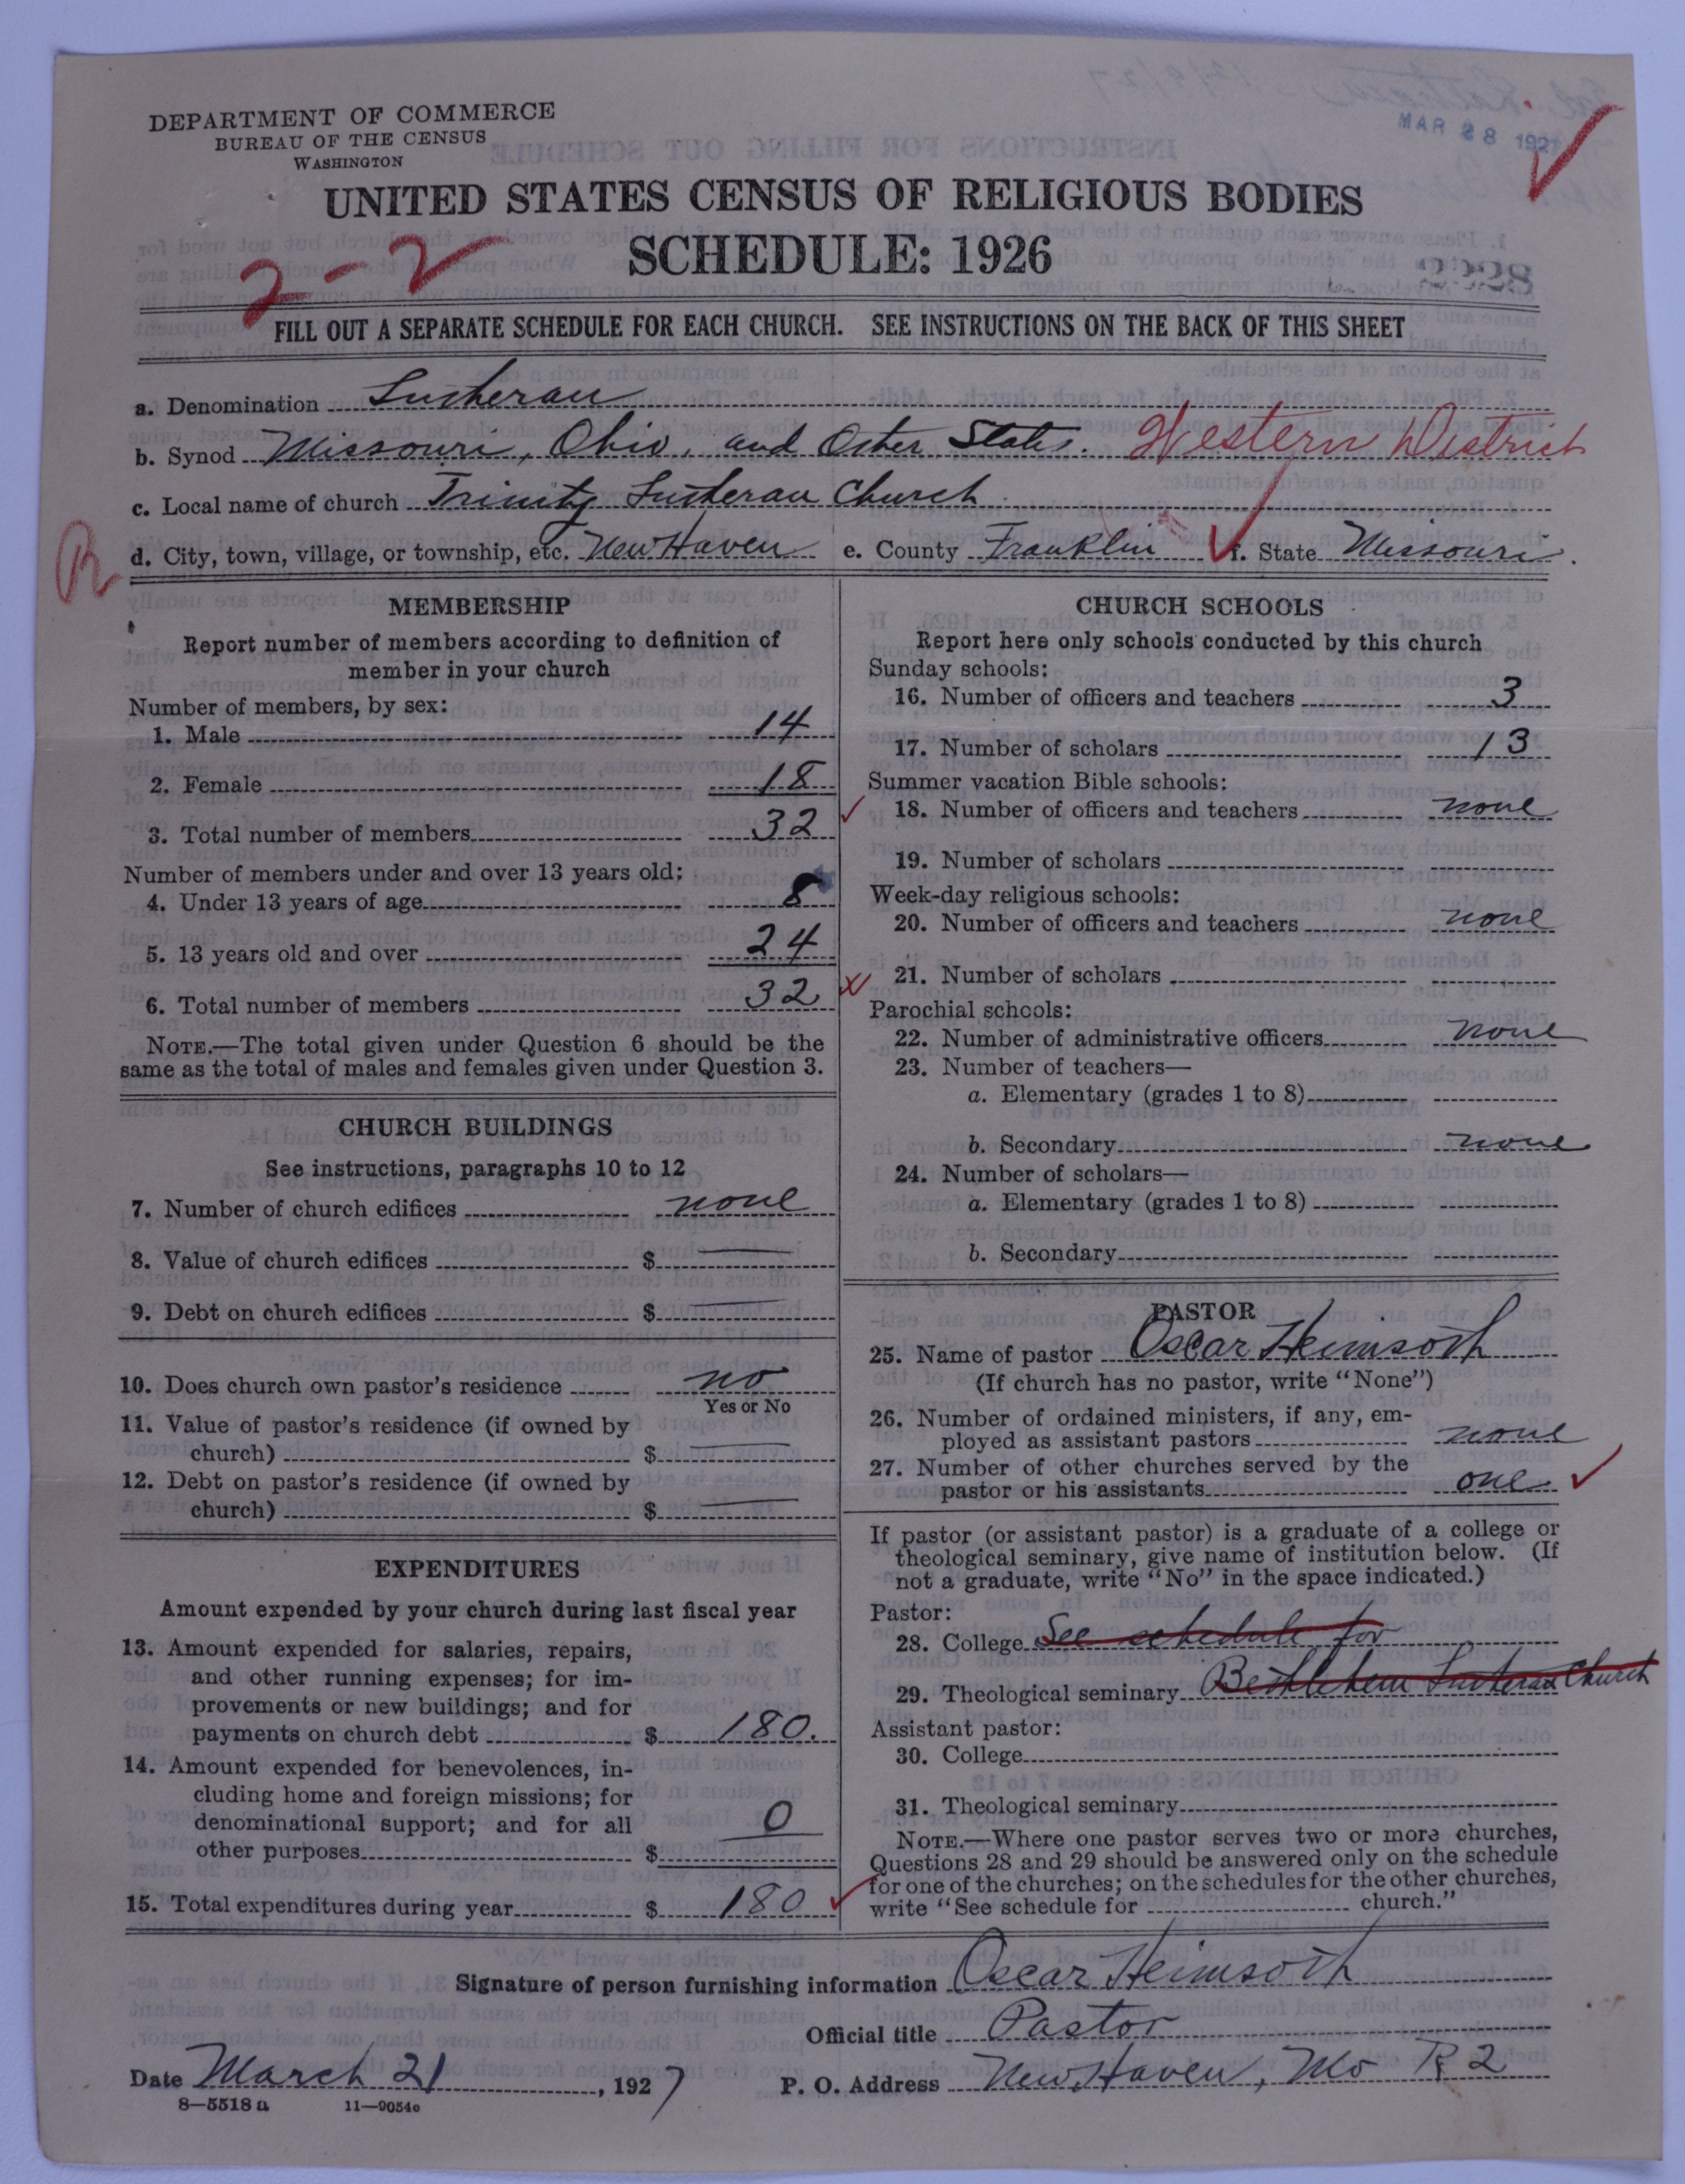 DEPARTMENT OF COMMERCE
BUREAU OF THE CENSUS
WASHINGTON
MAR 28 1927
UNITED STATES CENSUS OF RELIGIOUS BODIES
SCHEDULE: 1926
2-2
FILL OUT A SEPARATE SCHEDULE FOR EACH CHURCH. SEE INSTRUCTIONS ON THE BACK OF THIS SHEET
a. Denomination Lutheran
b. Synod Missouri, Ohio, and Other States. Western District
c. Local name of church Trinity Lutheran Church
R
d. City, town, village, or township, etc. New Haven e. County Franklin f. State Missouri.
MEMBERSHIP
Report number of members according to definition of
member in your church
Number of members, by sex:
1. Male 14
2. Female 18
3. Total number of members 32
Number of members under and over 13 years old:
4. Under 13 years of age 8
5. 13 years old and over 24
6. Total number of members 32
NOTE.—The total given under Question 6 should be the
same as the total of males and females given under Question 3.
CHURCH BUILDINGS
See instructions, paragraphs 10 to 12
7. Number of church edifices none
8. Value of church edifices $ —
9. Debt on church edifices $ —
10. Does church own pastor's residence no
Yes or No
11. Value of pastor's residence (if owned by
church) $ —
12. Debt on pastor's residence (if owned by
church) $ —
EXPENDITURES
Amount expended by your church during last fiscal year
13. Amount expended for salaries, repairs,
and other running expenses; for im-
provements or new buildings; and for
payments on church debt $ 180.
14. Amount expended for benevolences, in-
cluding home and foreign missions; for
denominational support; and for all
other purposes $ 0
15. Total expenditures during year $ 180
CHURCH SCHOOLS
Report here only schools conducted by this church
Sunday schools:
16. Number of officers and teachers 3
17. Number of scholars 13
Summer vacation Bible schools:
18. Number of officers and teachers none
19. Number of scholars
Week-day religious schools:
20. Number of officers and teachers none
21. Number of scholars
Parochial schools:
22. Number of administrative officers none
23. Number of teachers—
a. Elementary (grades 1 to 8)
b. Secondary none
24. Number of scholars—
a. Elementary (grades 1 to 8)
b. Secondary
PASTOR
25. Name of pastor Oscar Heimsoth
(If church has no pastor, write "None")
26. Number of ordained ministers, if any, em-
ployed as assistant pastors none
27. Number of other churches served by the
pastor or his assistants one
If pastor (or assistant pastor) is a graduate of a college or
theological seminary, give name of institution below. (If
not a graduate, write "No" in the space indicated.)
Pastor:
28. College See schedule for
29. Theological seminary Bethlehem Lutheran Church
Assistant pastor:
30. College
31. Theological seminary
NOTE.—Where one pastor serves two or more churches,
Questions 28 and 29 should be answered only on the schedule
for one of the churches; on the schedules for the other churches,
write "See schedule for church."
Signature of person furnishing information Oscar Heimsoth
Official title Pastor
Date March 21, 1927 P. O. Address New Haven, Mo R 2
8—5518 a 11—9054e